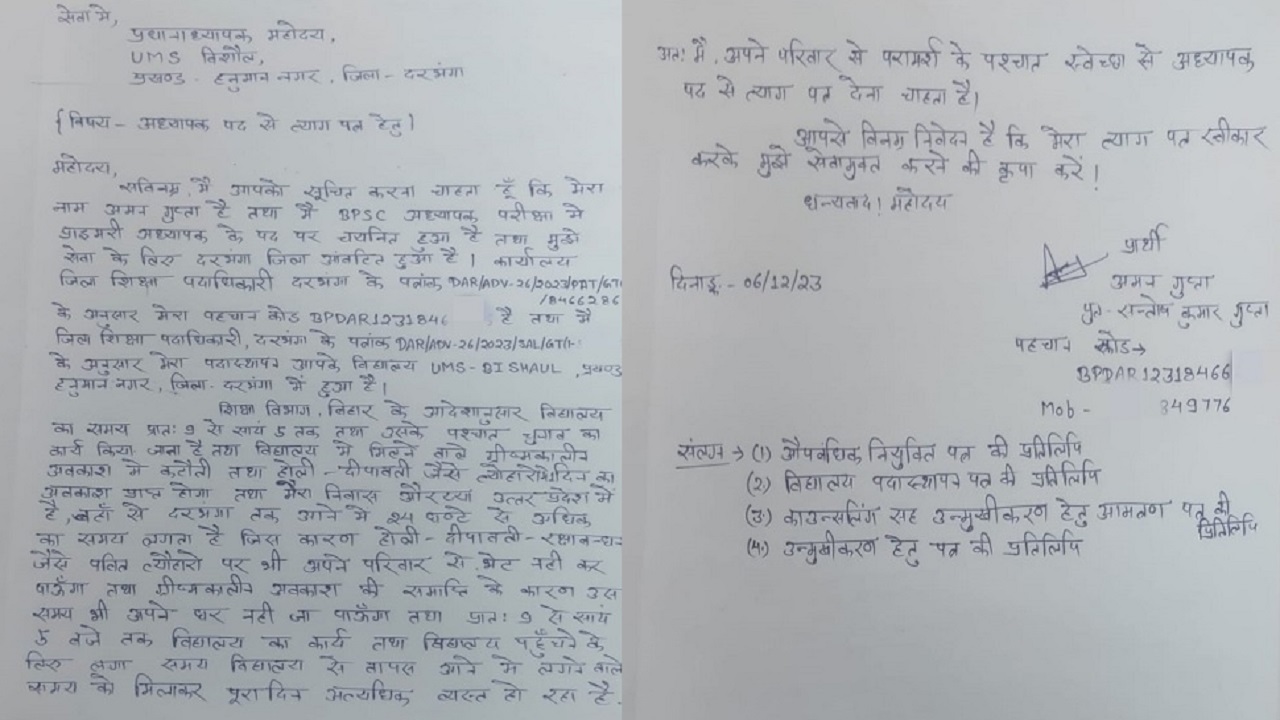 सेवा मे,
प्रधानाध्यापक महोदय,
UMS विशौल,
प्रखण्ड - हनुमान नगर, जिला - दरभंगा
{ विषय - अध्यापक पद से त्याग पत्र हेतु }
महोदय,
सविनम्र, मै आपको सूचित करना चाहता हूँ कि मेरा
नाम अमन गुप्ता है तथा मै BPSC अध्यापक परीक्षा मे
प्राइमरी अध्यापक के पद पर चयनित हुआ है तथा मुझे
सेवा के लिए दरभंगा जिला आवंटित हुआ है। कार्यालय
जिला शिक्षा पदाधिकारी दरभंगा के पत्रांक DAR/ADV-26/2023/PAT/GT
/8466286
के अनुसार मेरा पहचान कोड BPDAR1231846 है तथा मै
जिला शिक्षा पदाधिकारी, दरभंगा के पत्रांक DAR/ADV-26/2023/SAL/GT/1-
के अनुसार मेरा पदास्थापन आपके विद्यालय UMS-BISHAUL, प्रखण्ड
हनुमान नगर, जिला - दरभंगा में हुआ है।
शिक्षा विभाग, बिहार के आदेशानुसार विद्यालय
का समय प्रात: 9 से सायं 5 तक तथा उसके पश्चात चुनाव का
कार्य किया जाना है तथा विद्यालय मे मिलने वाले ग्रीष्मकालीन
अवकाश मे कटौती तथा होली - दीपावली जैसे त्योहारो मे दिन का
अवकाश प्राप्त होगा तथा मेरा निवास औरय्या उत्तर प्रदेश में
है, जहाँ से दरभंगा तक आने मे 24 घण्टे से अधिक
का समय लगता है जिस कारण होली - दीपावली - रक्षाबन्धन
जैसे पवित्र त्यौहारो पर भी अपने परिवार से भेट नही कर
पाऊँगा तथा ग्रीष्मकालीन अवकाश की समाप्ति के कारण उस
समय भी अपने घर नही जा पाऊँगा तथा प्रात: 9 से सायं
5 बजे तक विद्यालय का कार्य तथा विद्यालय पहुँचने के
लिए लगा समय विद्यालय से वापस आने मे लगने वाले
समय को मिलाकर पूरा दिन अत्यधिक व्यस्त हो रहा है.
अत: मै, अपने परिवार से परामर्श के पश्चात स्वेच्छा से अध्यापक
पद से त्याग पत्र देना चाहता है।
आपसे विनम्र निवेदन है कि मेरा त्याग पत्र स्वीकार
करके मुझे सेवामुक्त करने की कृपा करें!
धन्यवाद! महोदय
प्रार्थी
दिनाङ्क - 06/12/23
अमन गुप्ता
पुत्र - सन्तोष कुमार गुप्ता
पहचान कोड →
BPDAR12318466
Mob - 849776
संलग्न → (1) औपबंधिक नियुक्ति पत्र की प्रतिलिपि
(2) विद्यालय पदास्थापन पत्र की प्रतिलिपि
(3) काउन्सलिंग सह उन्मुखीकरण हेतु आमंत्रण पत्र की
प्रतिलिपि
(4) उन्मुखीकरण हेतु पत्र की प्रतिलिपि